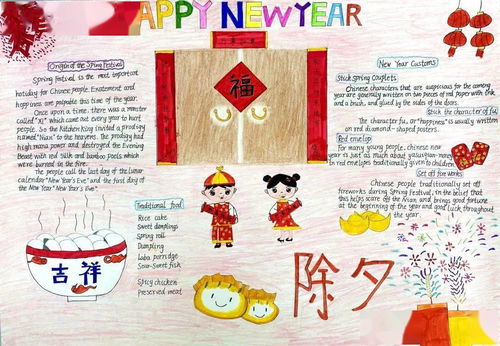 HAPPY NEW YEAR
Origin of the Spring Festival
Spring Festival is the most important
holiday for Chinese people. Excitement and
happiness are palpable this time of the year.
Once upon a time, there was a monster
called "Xi" which came out every year to hurt
people. So the Kitchen King invited a prodigy
named "Nian" to the heavens. The prodigy had
high mana power and destroyed the Evening
Beast with red silk and bamboo poles which
were burned in the fire.
The people call the last day of the lunar
calendar "New Year's Eve" and the first day of
the New Year "New Year's Eve".
福
New Year Customs
Stick Spring Couplets
Chinese characters that are auspicious for the coming
year are generally written on two pieces of red paper with ink
and a brush, and glued by the sides of the doors.
Stick the character of fu
The character fu, or "happiness" is usually written
on red diamond-shaped posters.
Red envelop
For many young people, chinese new
year is just as much about yasuiqian-money
in red envelopes traditionally given to children.
Set off fireworks
Chinese people traditionally set off
fireworks during Spring Festival, in the belief that
this helps scare off the Nian and brings good fortune
at the beginning of the year and good luck throughout
the year.
Traditional food
Rice cake
Sweet dumplings
Spring roll
Dumpling
Laba porridge
Sour-Sweet fish
Spicy chicken
Preserved meat
吉祥
除夕